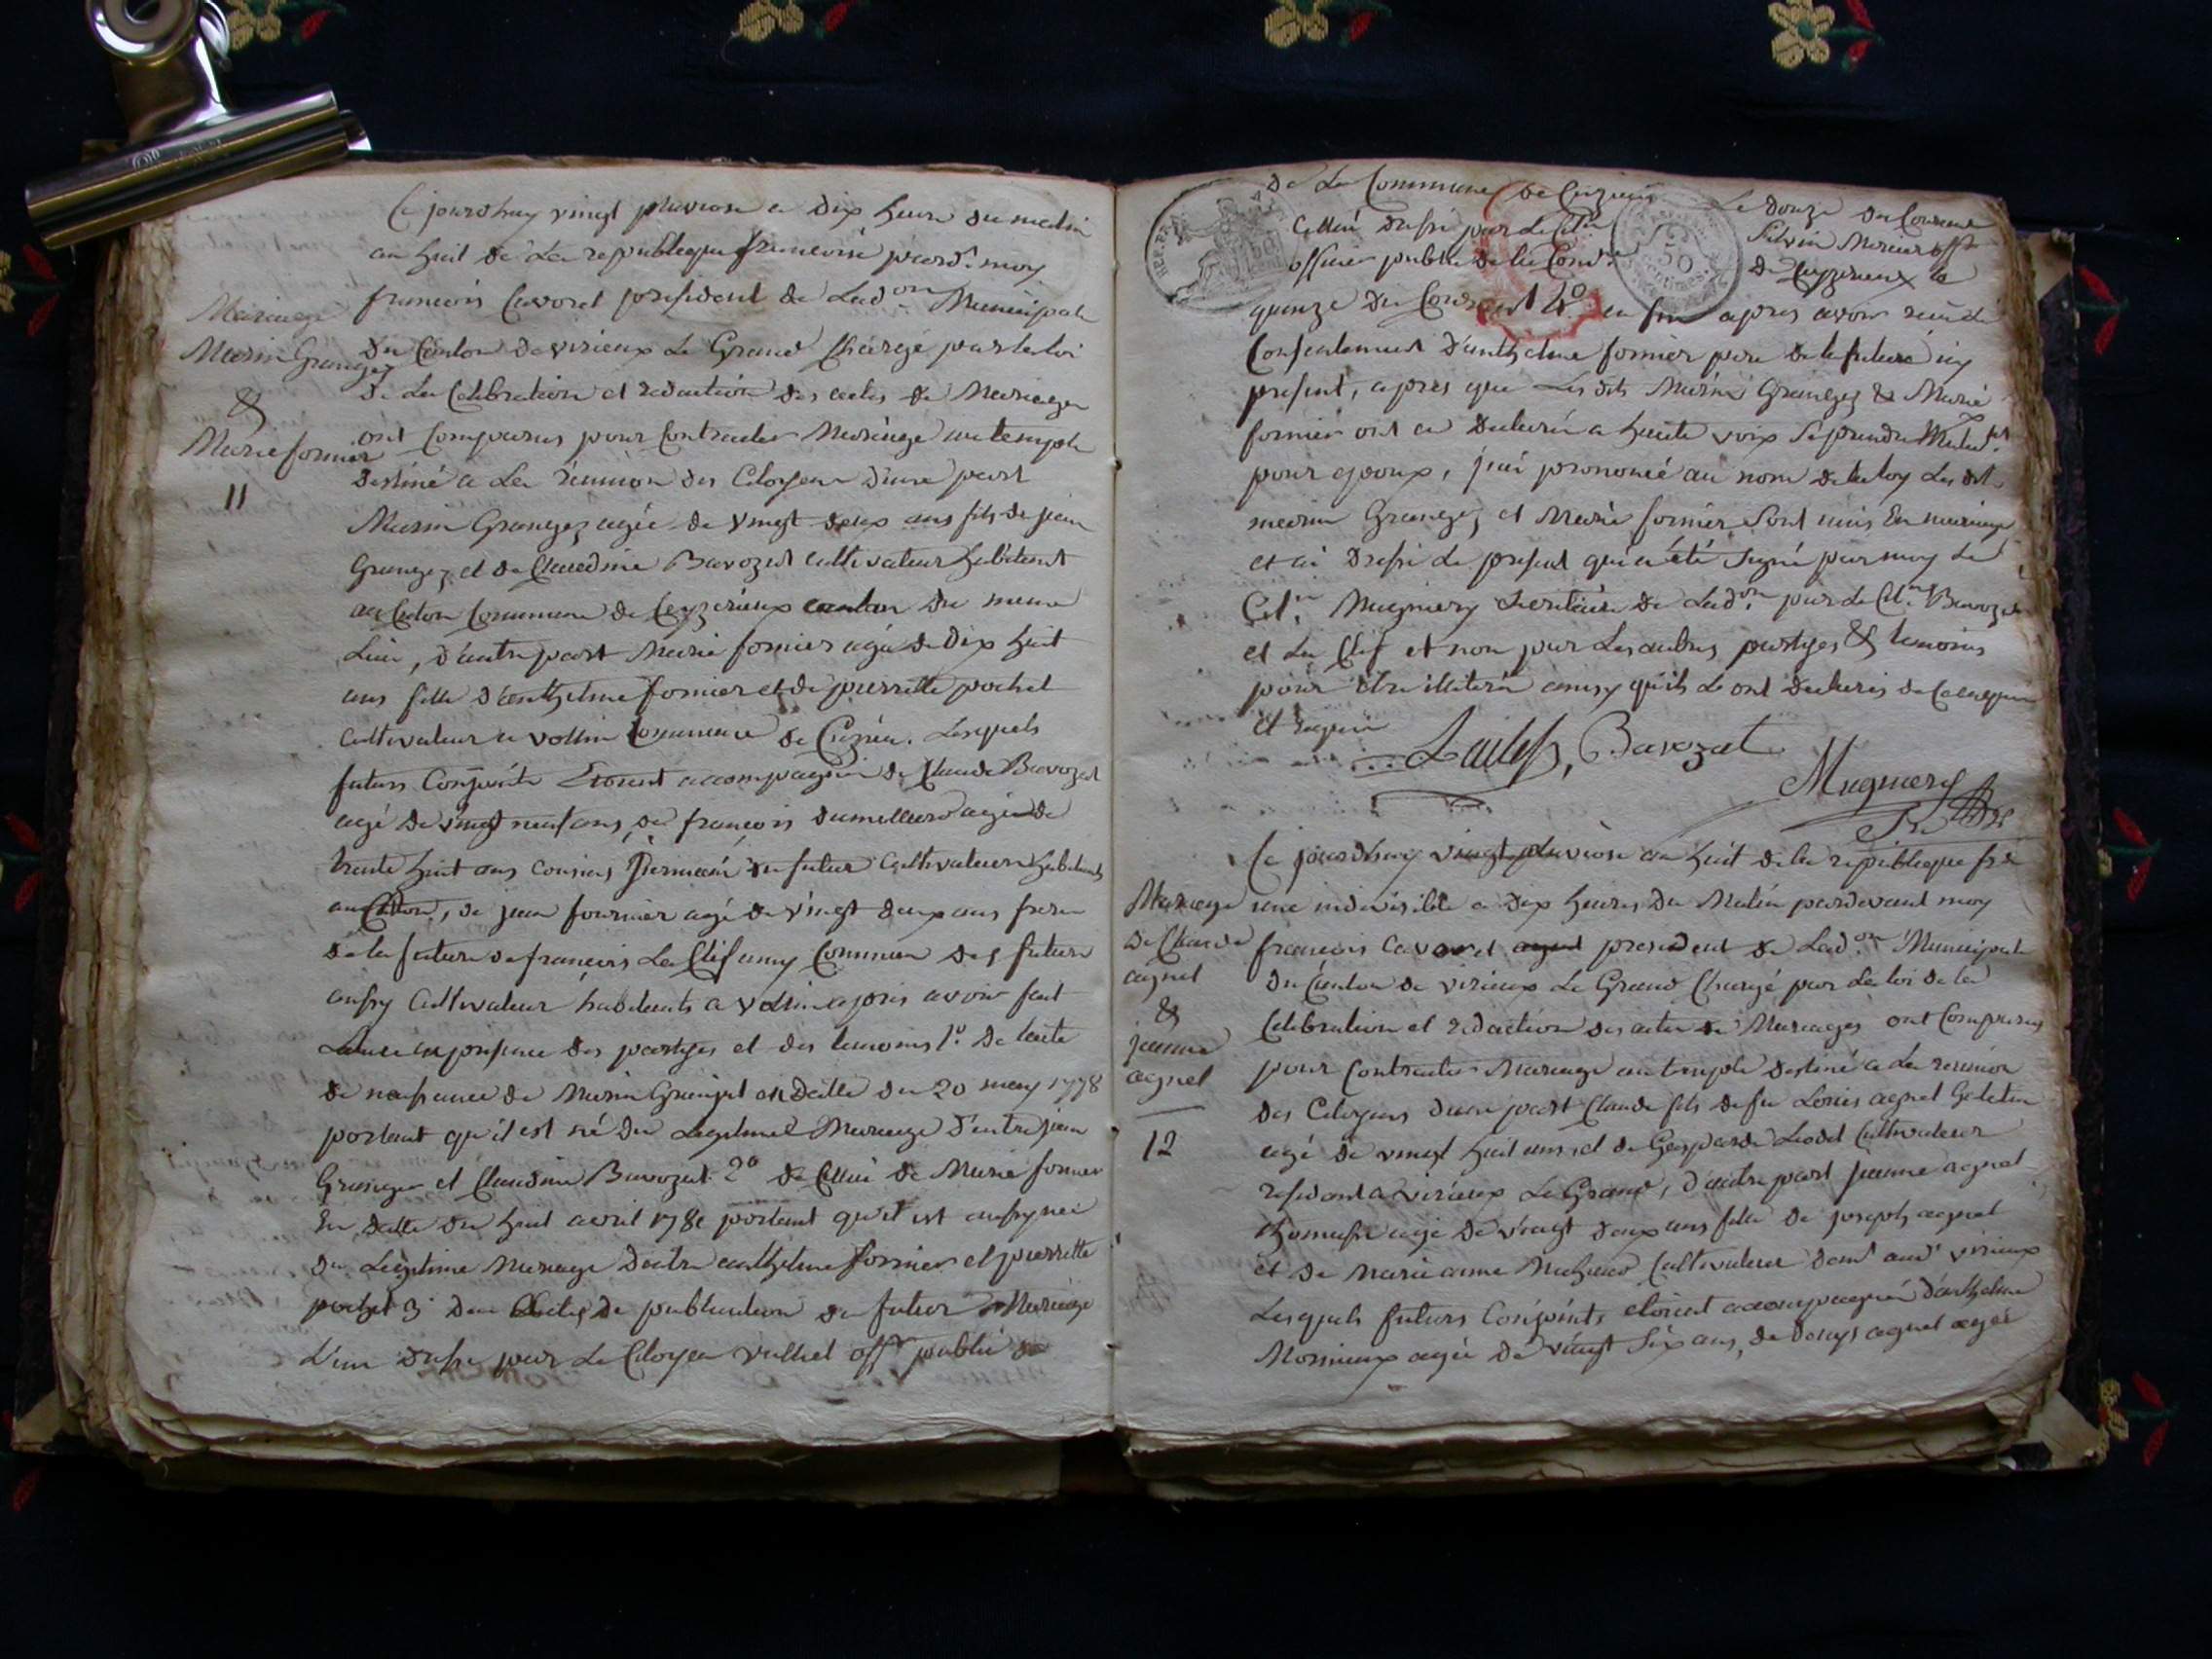 Ce jourdhuy vingt pluviose a dix heure du matin
an huit de la republique francoise pard.t moy
francois Cavoret president de Lad.on Municipale
Mariage
du Canton de virieux Le Grand Chargé par la loi
Marin Grangez
de La Celebration et redaction des actes de Mariages
&
ont Comparus pour Contracter Mariage au temple
Marie fornier
destiné a La réunion des Citoyens d'une part
11
Marin Grangez agée de vingt deux ans fils de jean
Grangez et de Claudine Bavozet cultivateur habitant
au Commune de Ceyzerieux canton du meme
Lieu, d'autre part Marie fornier agée de dix huit
ans fille d'anthelme fornier et de pierrette pochet
Cultivateur a vollin Commune de Cuzieu. Lesquels
futurs Conjoints Etoient accompagnée de Claude Bavozet
agé de vingt neuf ans, de francois dumollard agée de
trente huit ans cousins du futur Cultivateurs habitants
au , de jean fournier agé de vingt deux ans frere
de la future de francois La Clef amy Commun des futurs
aussy Cultivateur habitants a vollin apres avoir fait
en presence des partyes et des temoins 1.o de lacte
de naissance de Marin Granget en datte du 20 may 1778
portant qu'il est né du Legitime Mariage d'entre jean
Grangez et Claudine Bavozet. 2o de Celui de Marie fornier
En datte du huit avril 178 portant qu'il est aussy née
du Legitime Mariage dentre anthelme fornier et pierrette
pochet 3 deux actes de publication de futur Mariage
L'un dressé par Le Citoyen off.r public de
de La Commune de Cuzieux Le douze du Courant
Celui dressé par Le Cit.n Silvin Mercier off.r
officier public de la Com.e de Ceyzerieux le
50
centimes
REP. FRA.
quinze du Courant 4o en fin apres avoir reçu le
Consentement d'anthelme fornier pere de la future icy
present, apres que Les dits Marin Grangez & Marie
fornier ont eu declarés a haute voix se prendre Mutuel.t
pour epoux, j'ai prononcé au nom de la loy Les dit
marin Grangez et Marie fornier sont unis En mariage
et ai dressé Le present qui a été signé par moy Le
Cit.n Mugniery secretaire de Lad.on par Le Cit.n Bavozet
et La Clef et non par Les autres partyes & temoins
pour être illiterés ainsy quils Le ont declarés de Ce enquis
et requis
Laclef, Bavozat
Mugniery
Ce jourdhuy vingt pluviose an huit de la republique fra
Mariage
une indivisible a dix heures du Matin pardevant moy
de Claude
francois Cavoret agent president de Lad.on Municipale
agnel
du Canton de virieux Le Grand Chargé par La loi de la
&
Celebration et redaction des actes de Mariages ont Comparus
jeanne
pour Contracter Mariage au temple destiné a La reunion
agnel
des Citoyens d'une part Claude fils de feu Louis agnel Geletin
12
agé de vingt huit ans et de Gasparde Liodet Cultivateur
residant a virieux Le Grand, d'autre part jeanne agnel
agé de vingt deux ans fille de joseph agnel
et de marie anne Cultivateur dem.t aud.t virieux
Lesquels futurs Conjoints etoient accompagnés d'anthelme
agée de vingt six ans, de denys agnel agée